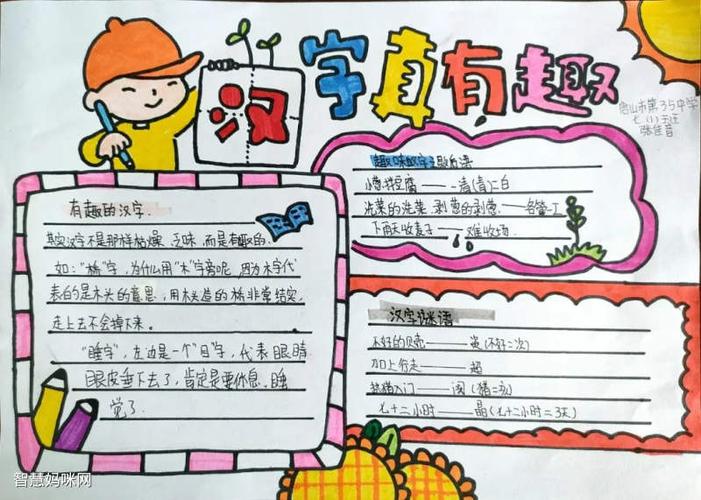 汉字真有趣
唐山市第35中学
七(1)班
张佳音
有趣的汉字.
其实汉字不是那样枯燥、乏味,而是有趣的.
如:"桥"字,为什么用"木"字旁呢,因为木字代
表的是木头的意思,用木头造的桥非常结实,
走上去不会掉下来。
"睡字",左边是一个"目"字,代表眼睛
眼皮垂下去了,肯定是要休息、睡
觉了.
趣味汉字歇后语
小葱拌豆腐——一清(青)二白
洗菜的洗菜,剥葱的剥葱——各管一工
下雨天收麦子——难收场
汉字谜语
不好的贝壳——
加上行走——超
入门——阅
七十二小时——晶(七十二小时=3天)
智慧妈咪网